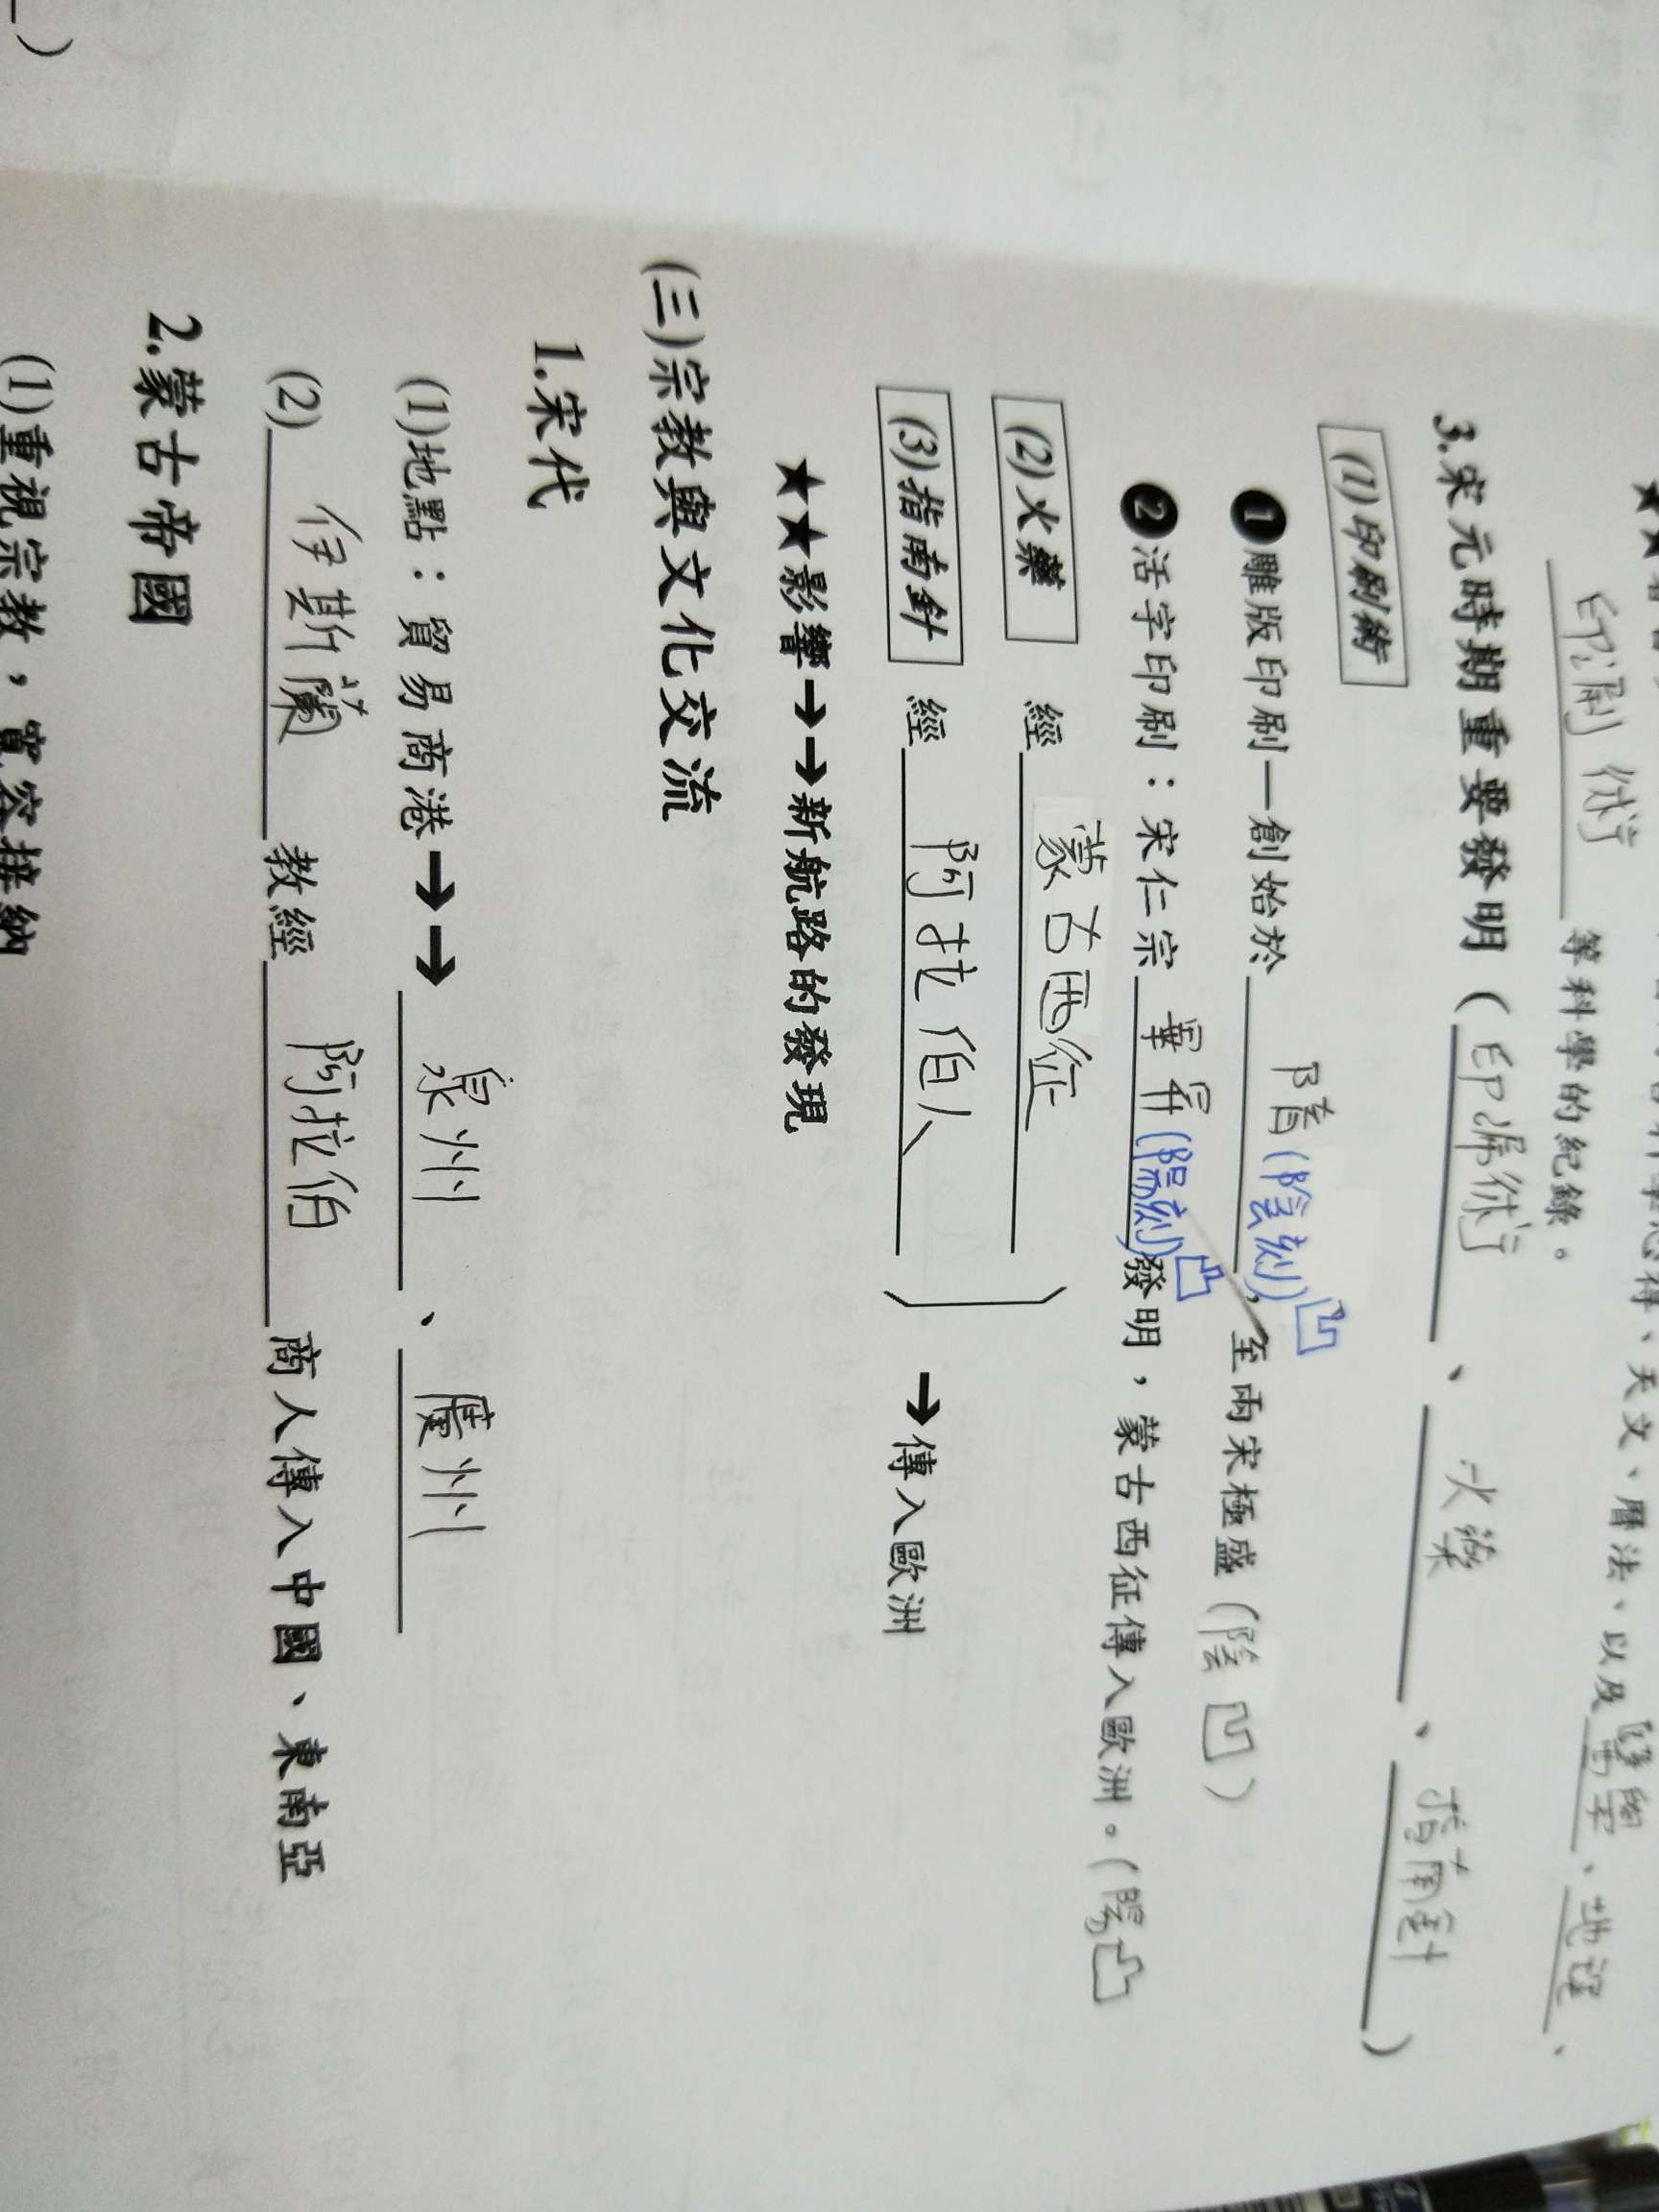 天文、曆法、以及醫學、地理、
印刷術等科學的紀錄。
3.宋元時期重要發明（印刷術、火藥、指南針）
(1)印刷術
❶雕版印刷—創始於隋(陰刻)凹，至兩宋極盛(陰凹)
❷活字印刷：宋仁宗畢昇(陽刻)凸發明，蒙古西征傳入歐洲。(陽凸
(2)火藥 經蒙古西征
(3)指南針 經阿拉伯人 →傳入歐洲
★★影響→→新航路的發現
(三)宗教與文化交流
1.宋代
(1)地點：貿易商港→→泉州、廣州
(2)伊斯蘭教經阿拉伯商人傳入中國、東南亞
2.蒙古帝國
(1)重視宗教，寬容接納